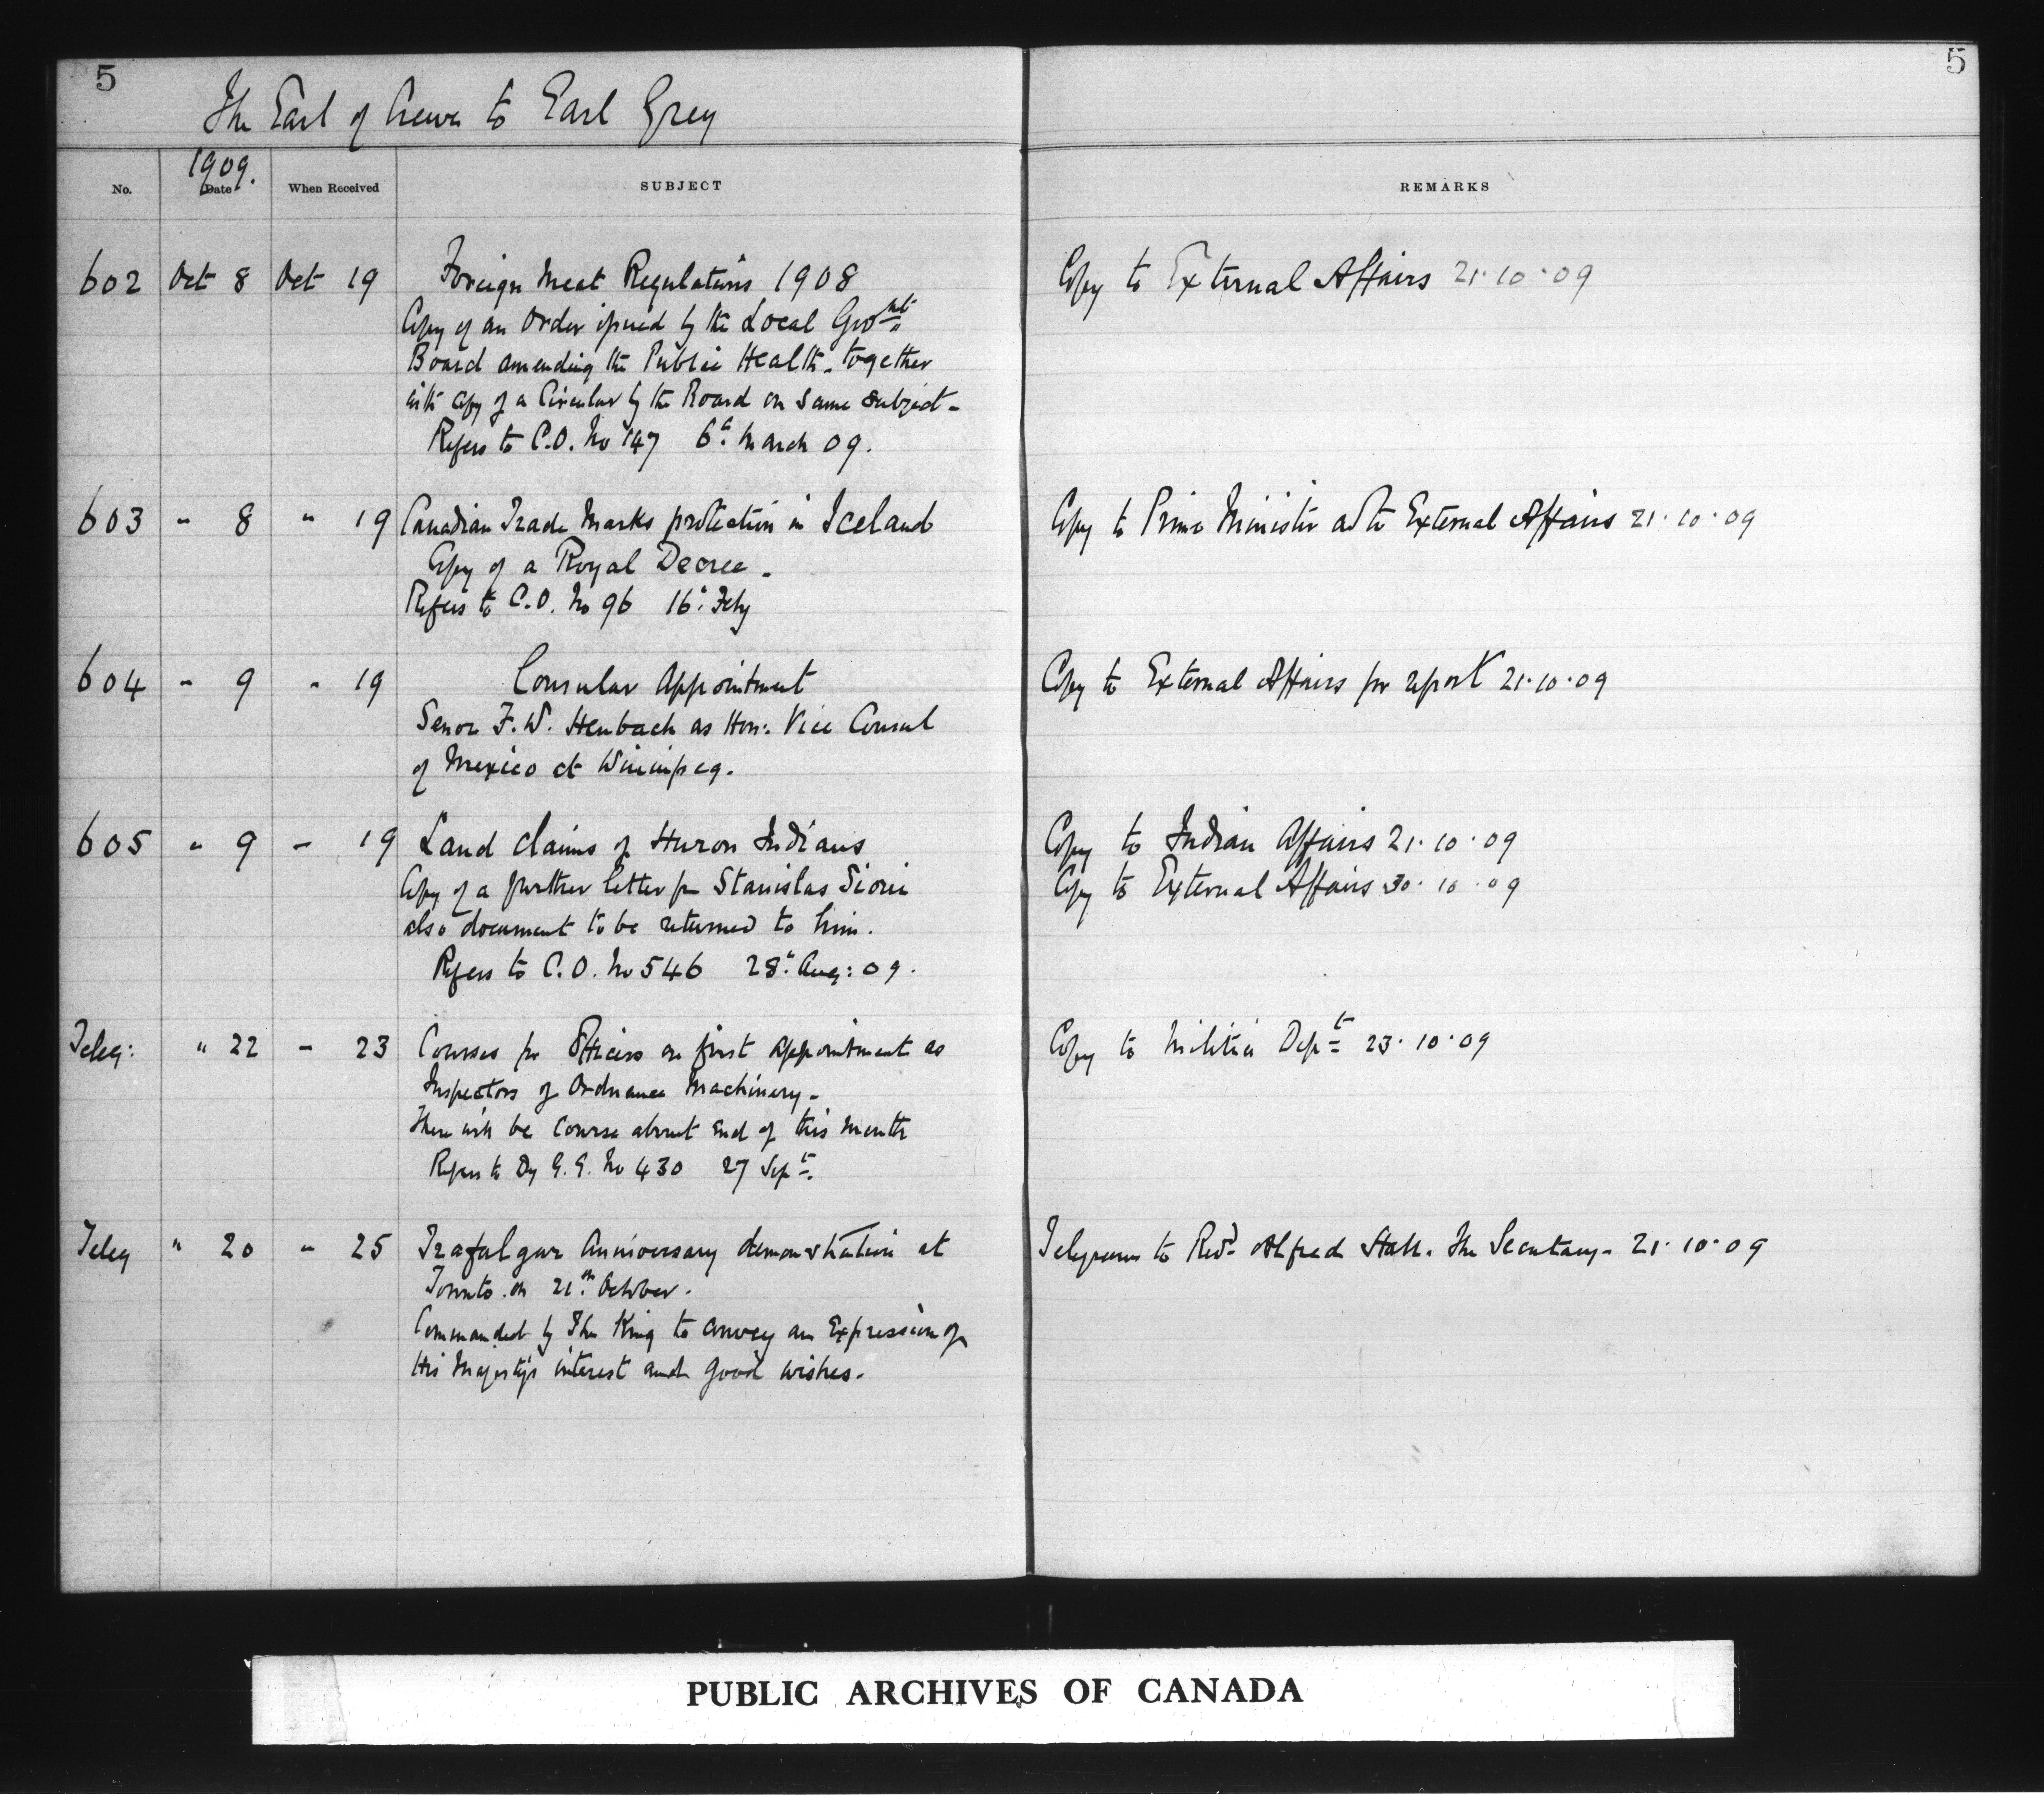 5
5
The Earl of Crewe to Earl Grey
No.
1909.
Date
When Received
SUBJECT
REMARKS
602 Oct 8 Oct 19 Foreign Meat Regulations 1908 Copy to External Affairs 21.10.09
Copy of an Order issued by the Local Govmt
Board amending the Public Health - together
with copy of a Circular by the Board on same subject -
Refers to C.O. No 147 6th March 09.
603 " 8 " 19 Canadian Trade Marks protection in Iceland Copy to Prime Minister and to External Affairs 21.10.09
Copy of a Royal Decree -
Refers to C.O. No 96 16th Feby
604 " 9 " 19 Consular Appointment Copy to External Affairs for report 21.10.09
Senor F.W. Heubach as Hon: Vice Consul
of Mexico at Winnipeg.
605 " 9 " 19 Land claims of Huron Indians Copy to Indian Affairs 21.10.09
Copy of a further letter fm Stanislas Sioui Copy to External Affairs 30.10.09
also document to be returned to him.
Refers to C.O. No 546 28th Aug: 09.
Teleg: " 22 " 23 Courses for Officers on first appointment as Copy to Militia Dept 23.10.09
Inspectors of Ordnance Machinery -
There will be Course about end of this month
Refers to Dy G.G. No 430 27 Sept.
Teleg " 20 " 25 Trafalgar Anniversary demonstration at Telegram to Revd Alfred Hall. The Secretary - 21.10.09
Toronto on 21st October.
Commanded by The King to convey an Expression of
His Majesty's interest and good wishes.
PUBLIC ARCHIVES OF CANADA